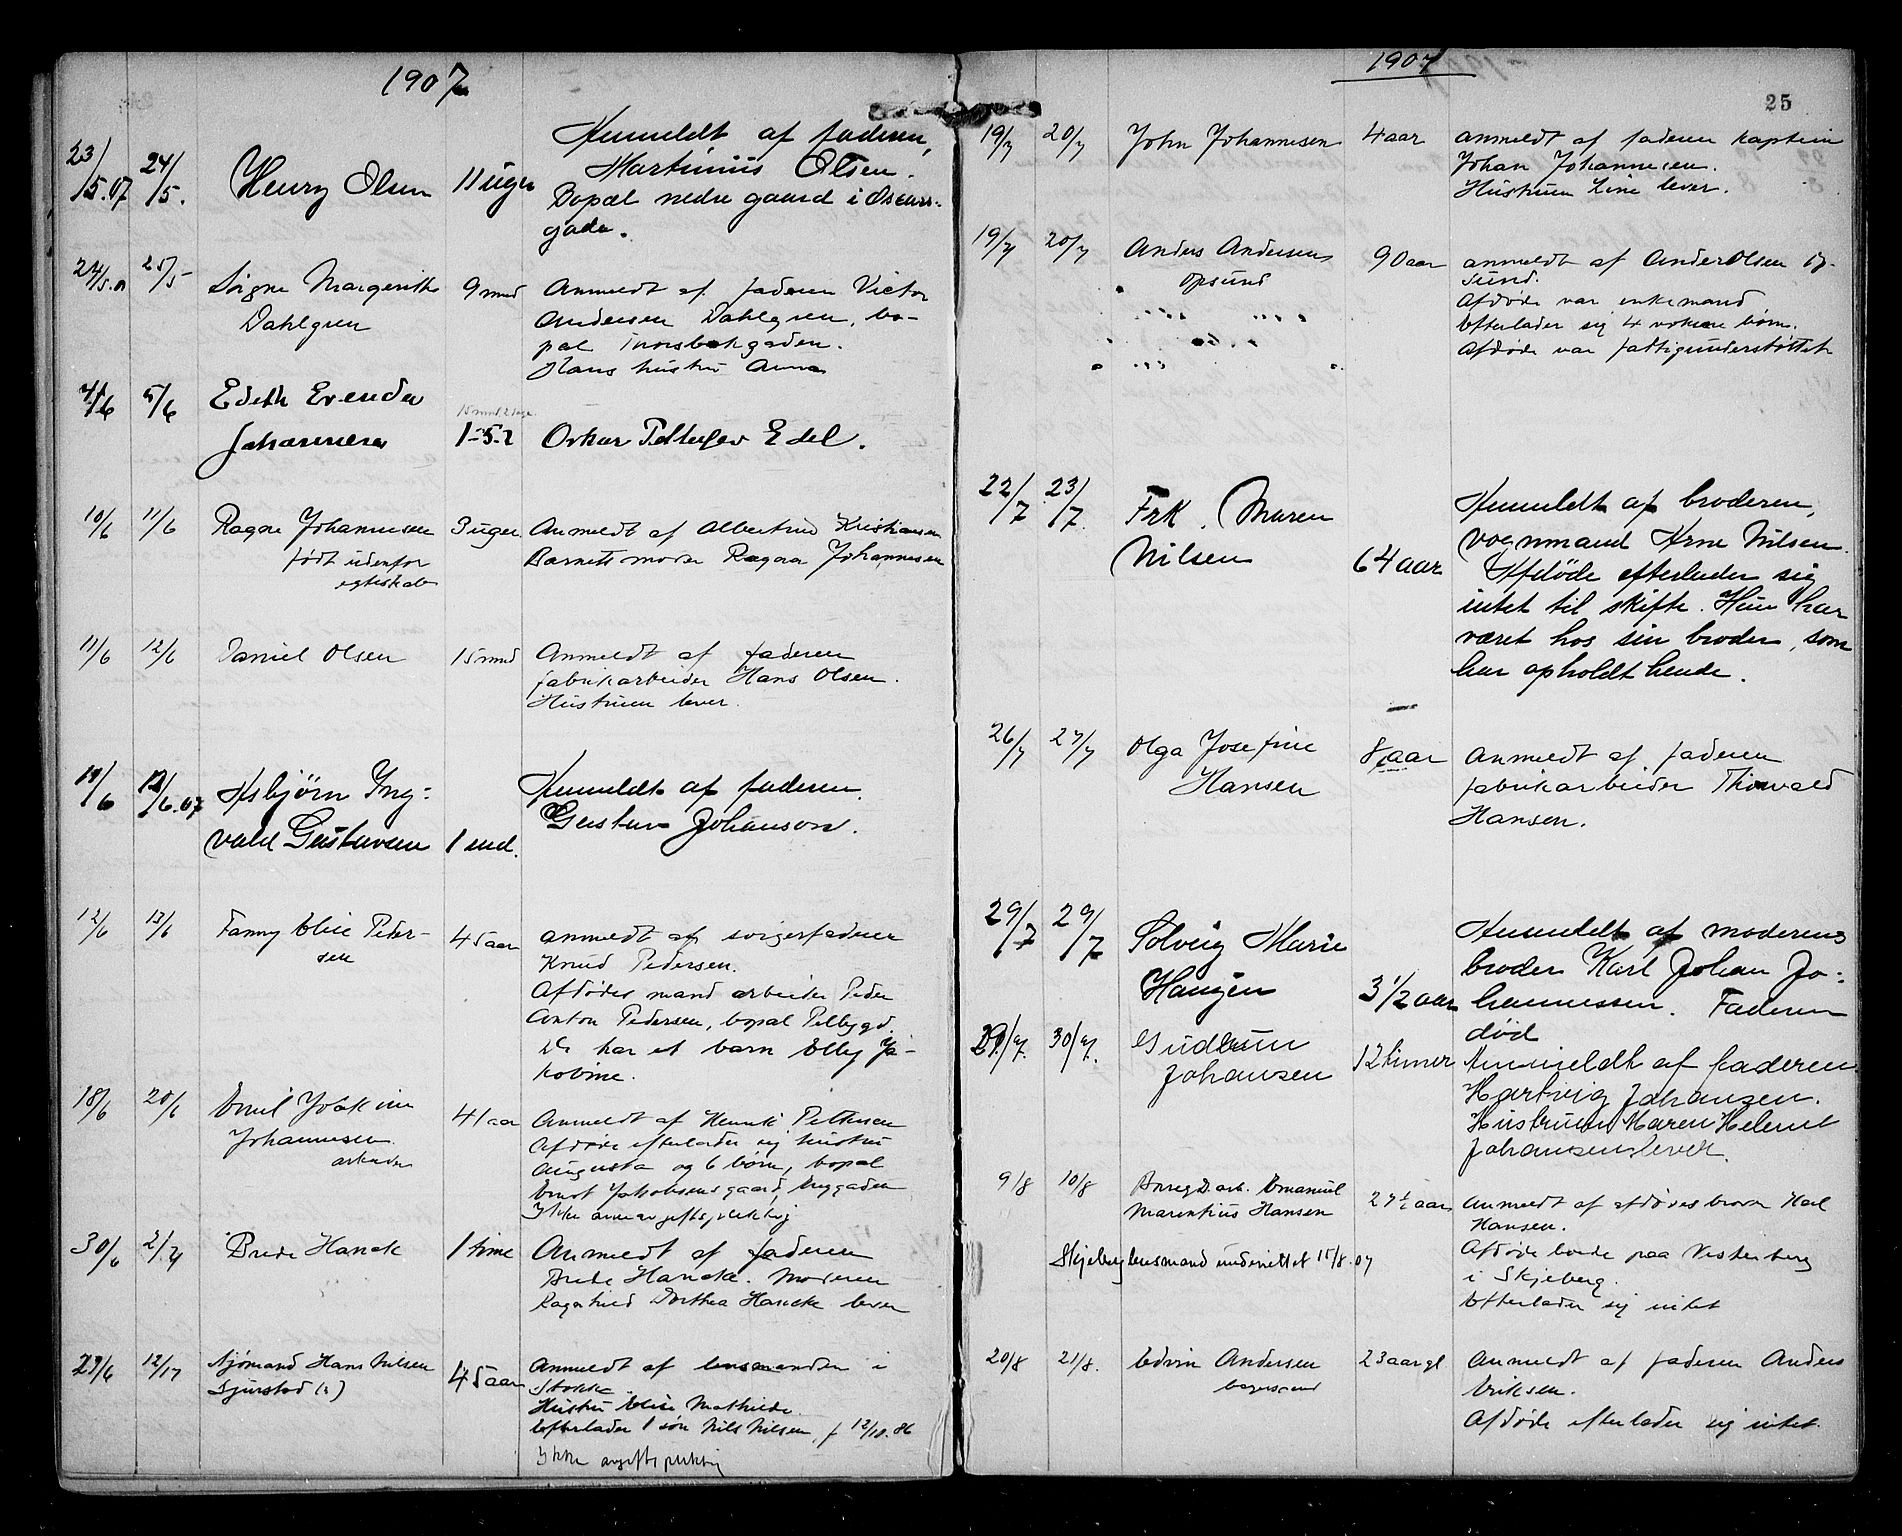 1907
23/5.07 24/5. Henry Olsen 11 uger Anmeldt af faderen,
Martinius Olsen.
Bopæl nedre gaard i Oscars-
gade.
24/5.07 25/5 Signe Margerithe 9 mnd Anmeldt af faderen Victor
Dahlgren Andersen Dahlgren, bo-
pæl
Hans hustru Anna
4/6 5/6 Edith Evenda
15 mnd 2 dage
Johannesen 1-5-2 Oskar Edel.
10/6 11/6 Ragna Johannesen 3 uger Anmeldt af Albertine Kristiansen
født udenfor Barnets moder Ragna Johannesen
egteskab
11/6 12/6 Daniel Olsen 15 mnd Anmeldt af faderen
fabrikarbeider Hans Olsen.
Hustruen lever.
11/6 12/6.07 Asbjørn Ing- Anmeldt af faderen
vald Gustavsen 1 md. Gustav Johanson.
12/6 13/6 Fanny Elise Peder- 45 aar anmeldt af svigerfaderen
sen Knud Pedersen.
Afdødes mand arbeider Peder
Anton Pedersen, bopæl
De har et barn Elly Ja-
kobine.
18/6 20/6 Emil Joakim 41 aar Anmeldt af Henrik Pettersen
Johannesen Afdøde efterlader sig hustru
arbeider Augusta og 6 børn, bopæl
Ernst Jakobsens gaard,
Ikke arveavgiftspliktig
30/6 2/7 Brede Hancke 1 time Anmeldt af faderen
Brede Hancke. Moderen
Ragnhild Dorthea Hancke lever
29/6 12/7 Sjømand Hans Nilsen 45 aar Anmeldt af lensmanden i
Stokke
Hustru Elise Mathilde.
Efterlader 1 søn Nils Nilsen, f 12/10.86
Ikke avgiftspliktig
1907
25
19/7 20/7 John Johannesen 4 aar anmeldt af faderen kaptein
Johan Johannesen.
Hustruen Line lever.
19/7 20/7 Anders Andersen 90 aar anmeldt af Anders Olsen Op-
Opsund sund.
Afdøde var enkemand
Efterlader sig 4 voksne børn.
Afdøde var fattigunderstøttet
22/7 23/7. Frk. Maren Anmeldt af broderen,
Nilsen 64 aar vognmand Arne Nilsen.
Afdøde efterlader sig
intet til skifte. Hun har
været hos sin broder, som
har opholdt hende.
26/7 27/7 Olga Josefine 8 aar Anmeldt af faderen
Hansen fabrikarbeider Thorvald
Hansen.
29/7 29/7 Solveig Marie Anmeldt af moderens
Hansen 3 1/2 aar broder Karl Johan Jo-
hannessen. Faderen
død
29/7. 30/7. Gudrun 12 timer Anmeldt af faderen
Johansen Hartvig Johansen.
Hustruen Maren Helene
Johansen lever.
9/8 10/8 Emanuel
Marentius Hansen 27 1/2 aar Anmeldt af afdødes broder Karl
Hansen.
Skjeberg lensmand underrettet 15/8.07
Afdøde boede paa Vesterberg
i Skjeberg.
Efterlader sig intet
20/8 21/8. Edvin Andersen 23 aar gl Anmeldt af faderen Anders
bagersvend Eriksen.
Afdøde efterlader sig intet.